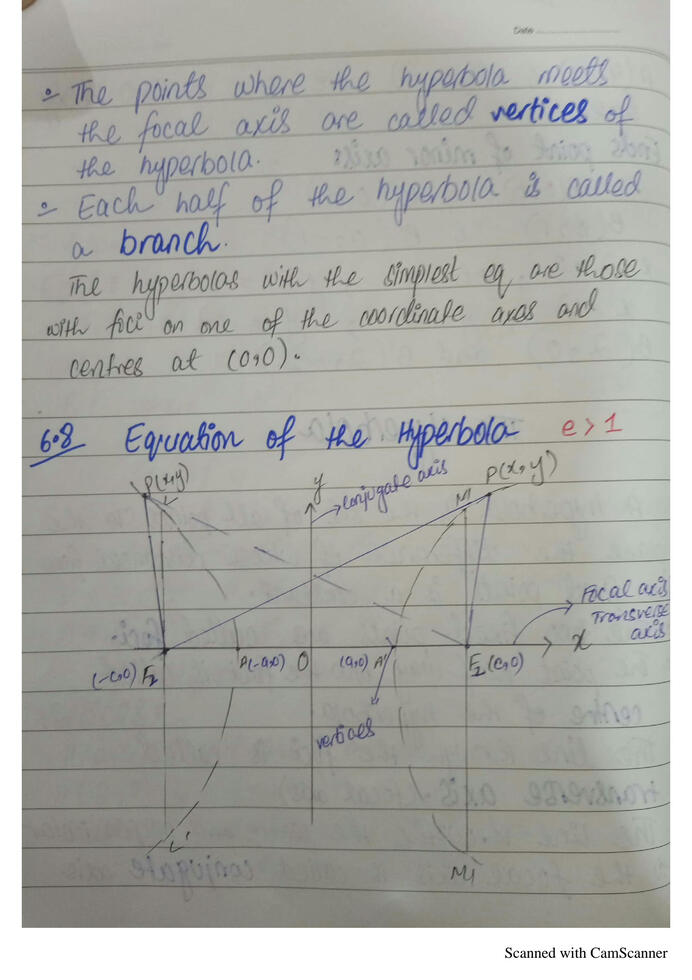 Date
The points where the hyperbola meets
the focal axis are called vertices of
the hyperbola.
Each half of the hyperbola is called
a branch.
The hyperbolas with the simplest eq are those
with foci on one of the coordinate axes and
centres at (0,0).
6.8 Equation of the Hyperbola e>1
P(x,y) y conjugate axis M P(x,y)
L
Focal axis
Transverse
axis
x
(-c,0) F2 A(-a,0) O (a,0) A' F2(c,0)
vertices
L'
M'
Scanned with CamScanner